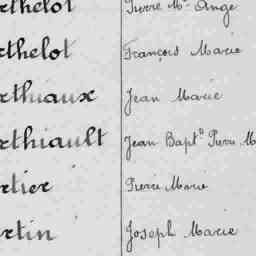 rthelot Pierre Me Ange
rthelot François Marie
rthiaux Jean Marie
rthiault Jean Baptte Pierre M
rtier Pierre Marie
rtin Joseph Marie